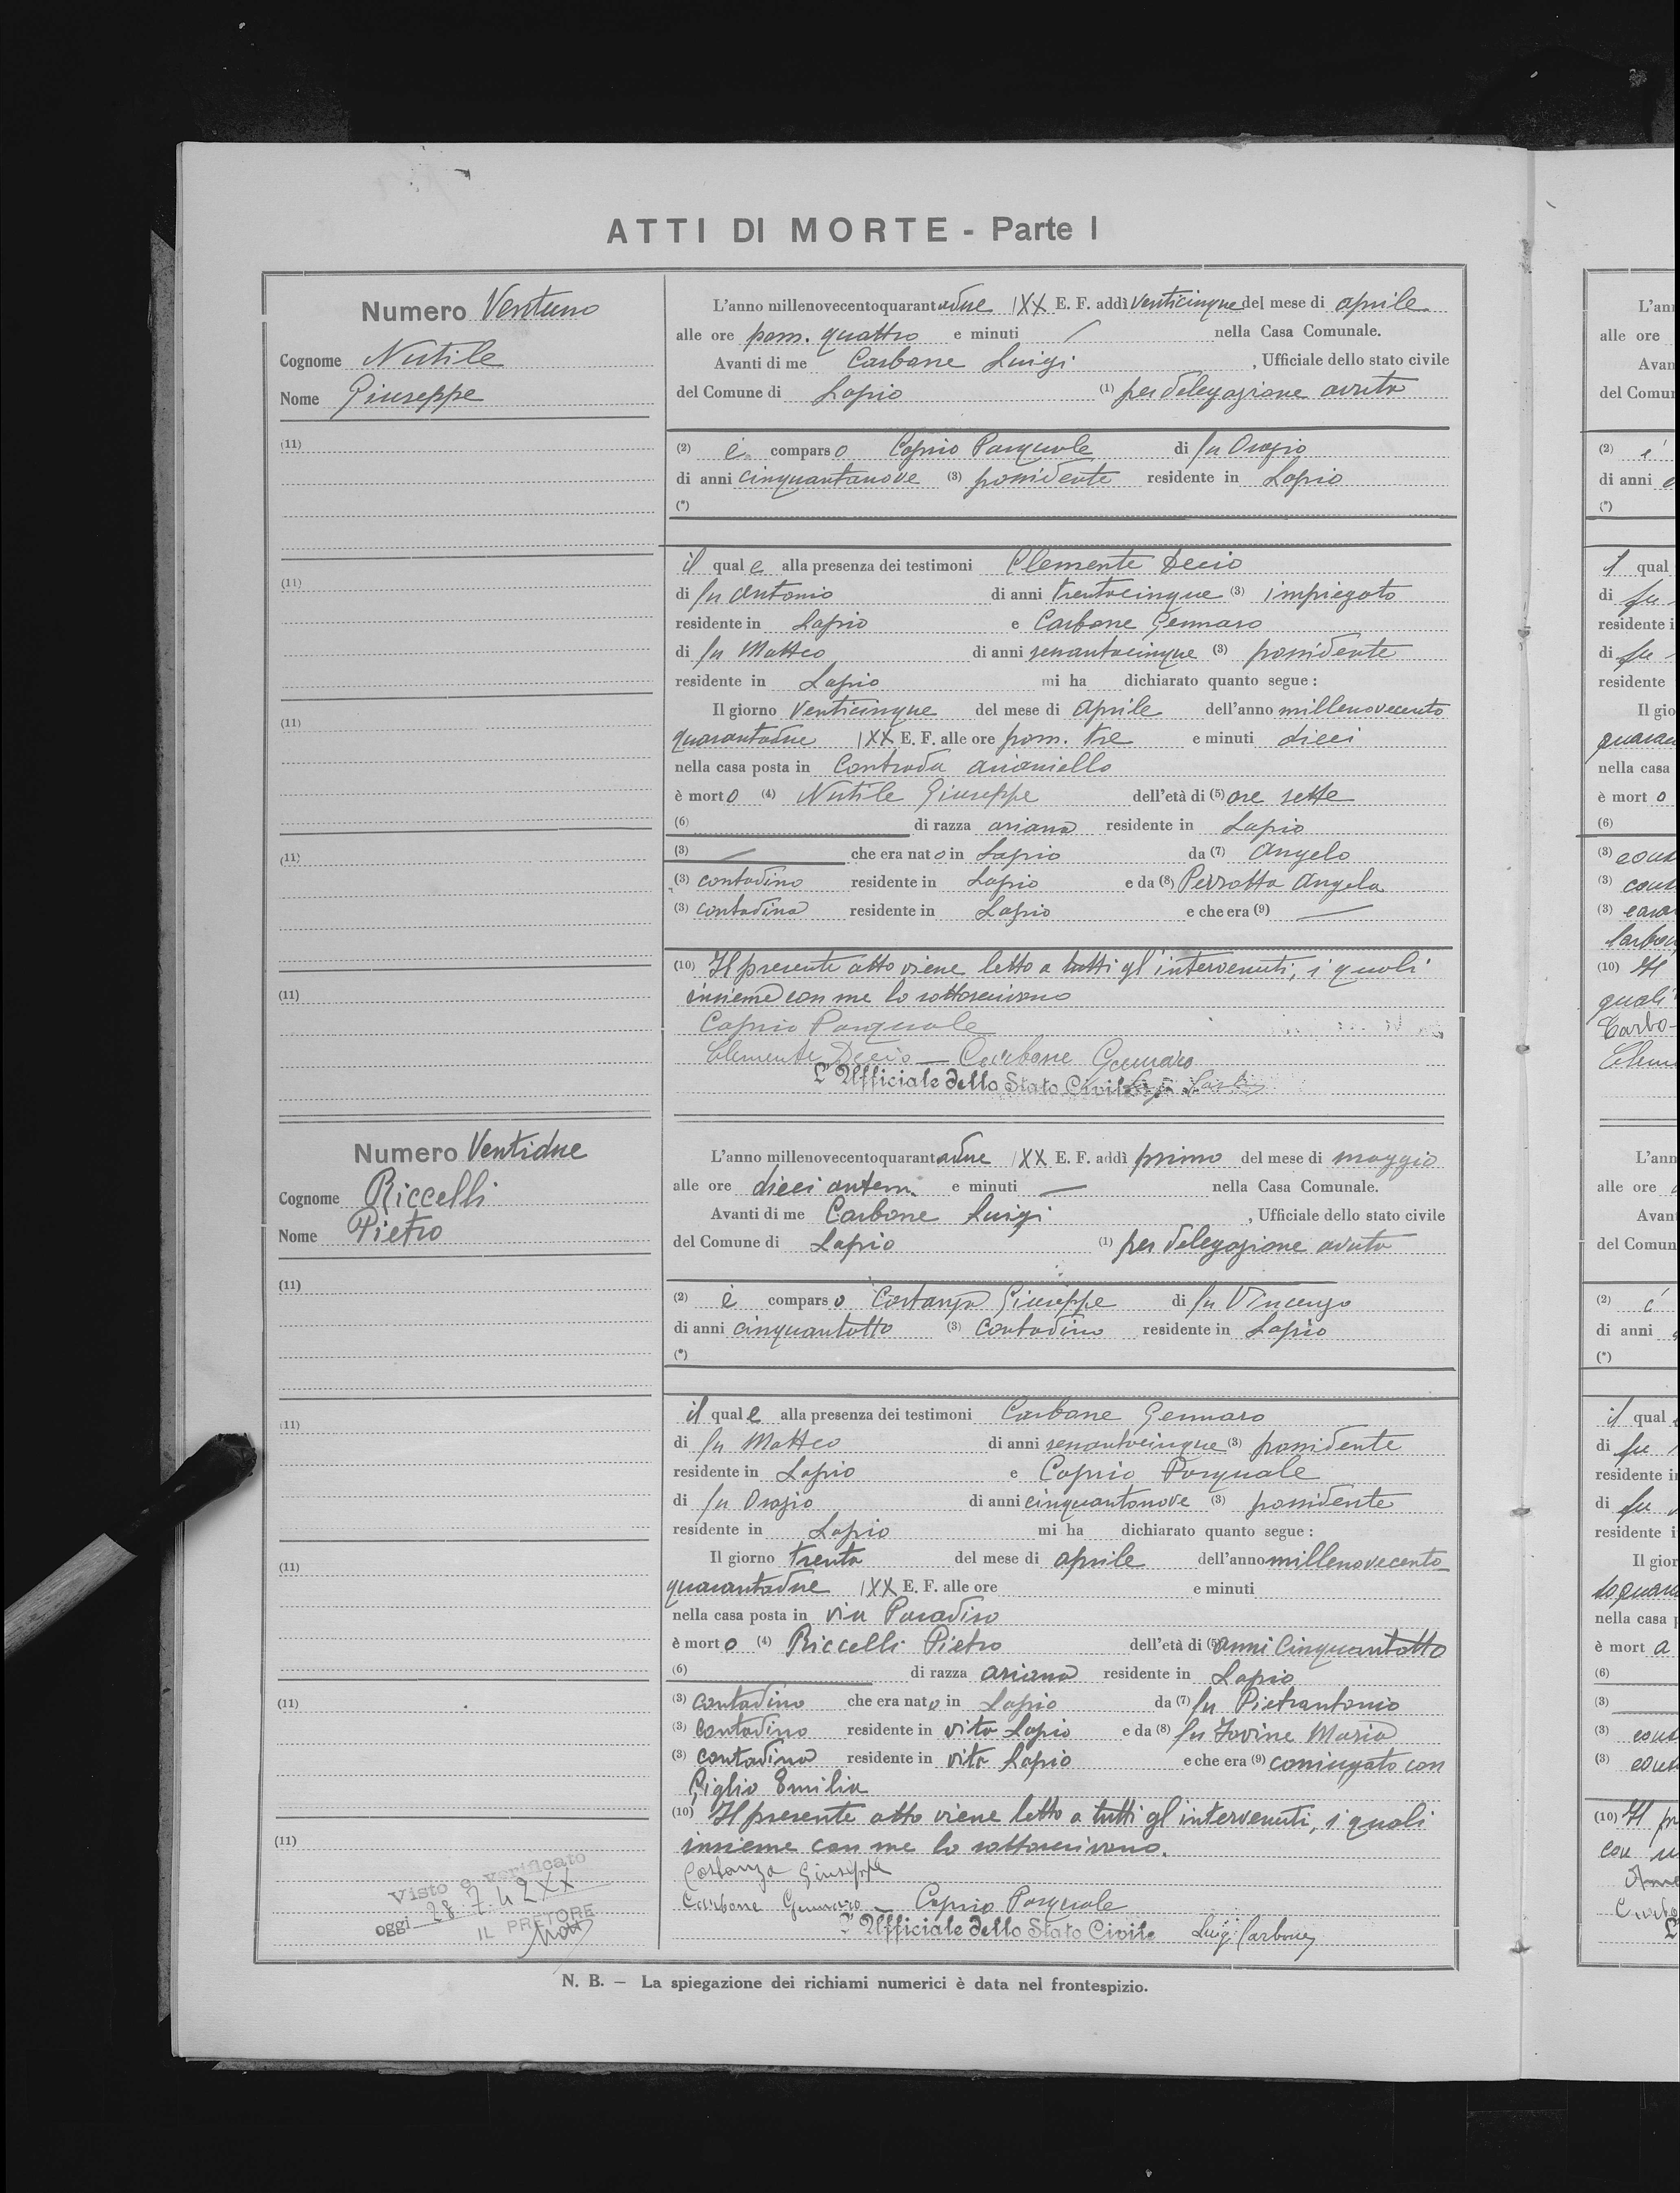 ATTI DI MORTE - Parte I
Numero Ventuno
Cognome Nutile
Nome Giuseppe
(11)
(11)
(11)
(11)
(11)
L'anno millenovecentoquarantadue IXX E. F. addì venticinque del mese di aprile
alle ore pom. quattro e minuti / nella Casa Comunale.
Avanti di me Carbone Luigi, Ufficiale dello stato civile
del Comune di Lapio (1) per delegazione avuta
(2) è comparso Caprio Pasquale di fu Orazio
di anni cinquantanove (3) possidente residente in Lapio
(*)
il quale alla presenza dei testimoni Clemente Decio
di fu Antonio di anni trentacinque (3) impiegato
residente in Lapio e Carbone Gennaro
di fu Matteo di anni sessantacinque (3) possidente
residente in Lapio mi ha dichiarato quanto segue:
Il giorno venticinque del mese di aprile dell'anno millenovecento
quarantadue IXX E. F. alle ore pom. tre e minuti dieci
nella casa posta in Contrada Arianiello
è morto (4) Nutile Giuseppe dell'età di (5) ore sette
(6) di razza ariana residente in Lapio
(3) — che era nato in Lapio da (7) Angelo
(3) contadino residente in Lapio e da (8) Perrotta Angela
(3) contadina residente in Lapio e che era (9) —
(10) Il presente atto viene letto a tutti gl'intervenuti, i quali
insieme con me lo sottoscrivono
Caprio Pasquale
Clemente Decio — Carbone Gennaro
L'Ufficiale dello Stato Civile
Numero Ventidue
Cognome Riccelli
Nome Pietro
(11)
(11)
(11)
(11)
(11)
Visto e verificato
oggi 28.7.42 XX
IL PRETORE
L'anno millenovecentoquarantadue IXX E. F. addì primo del mese di maggio
alle ore dieci antem. e minuti — nella Casa Comunale.
Avanti di me Carbone Luigi, Ufficiale dello stato civile
del Comune di Lapio (1) per delegazione avuta
(2) è comparso Costanza Giuseppe di fu Vincenzo
di anni cinquantotto (3) contadino residente in Lapio
(*)
il quale alla presenza dei testimoni Carbone Gennaro
di fu Matteo di anni sessantacinque (3) possidente
residente in Lapio e Caprio Pasquale
di fu Orazio di anni cinquantanove (3) possidente
residente in Lapio mi ha dichiarato quanto segue:
Il giorno trenta del mese di aprile dell'anno millenovecento
quarantadue IXX E. F. alle ore e minuti
nella casa posta in via Paradiso
è morto (4) Riccelli Pietro dell'età di (5) anni cinquantotto
(6) di razza ariana residente in Lapio
(3) contadino che era nato in Lapio da (7) fu Pietrantonio
(3) contadino residente in vita Lapio e da (8) fu Iovine Maria
(3) contadina residente in vita Lapio e che era (9) coniugato con
Giglio Emilia
(10) Il presente atto viene letto a tutti gl'intervenuti, i quali
insieme con me lo sottoscrivono.
Costanza Giuseppe
Carbone Gennaro — Caprio Pasquale
L'Ufficiale dello Stato Civile Luigi Carbone
N. B. — La spiegazione dei richiami numerici è data nel frontespizio.